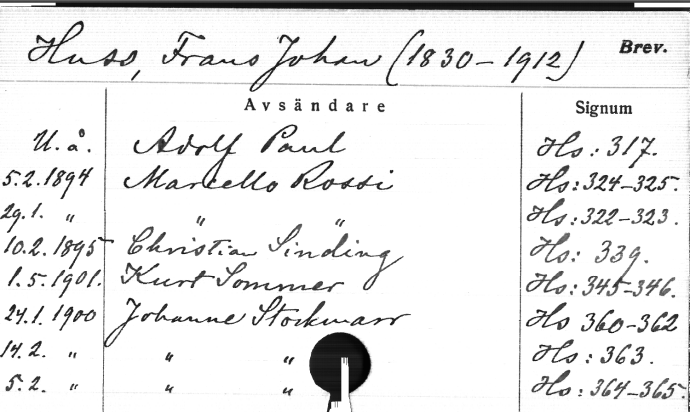 Huss, Frans Johan (1830-1912) Brev.
Avsändare Signum
U. å. Adolf Paul Hs: 317.
5.2.1894 Marcello Rossi Hs: 324-325.
29.1. " " " Hs: 322-323.
10.2.1895 Christian Sinding Hs: 339.
1.5.1901. Kurt Sommer Hs: 345-346.
24.1.1900 Johanne Stockmarr Hs 360-362
14.2. " " " Hs: 363.
5.2. " " " Hs: 364-365.